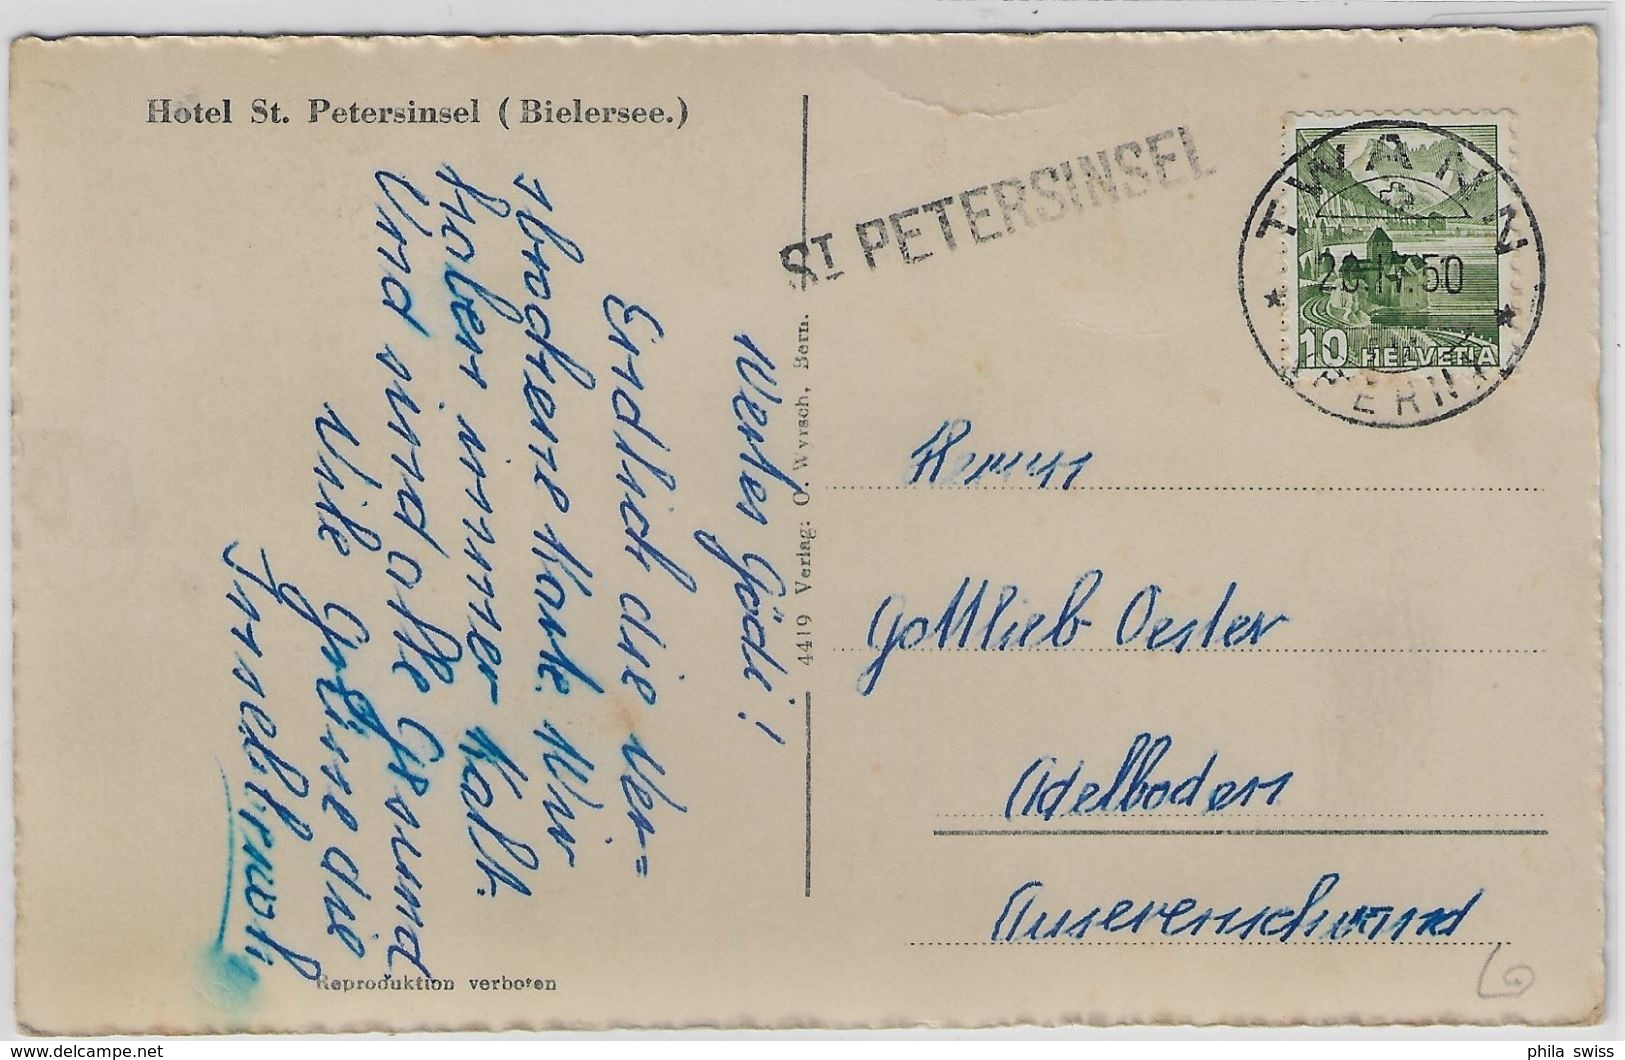 Hotel St. Petersinsel (Bielersee.)
Werter Gödi!
Endlich die ver=
sprochene Karte. Wir
haben immer kalt.
Und sind alle Gesund
Vile Grüsse die
Inselirwoli
4419 Verlag: O. Wyrsch, Bern.
Reproduktion verboten
ST PETERSINSEL
TWANN
20.IV.50
10 HELVETIA
Herrn
Gottlieb Oester
Adelboden
Auserenschwand
phila swiss